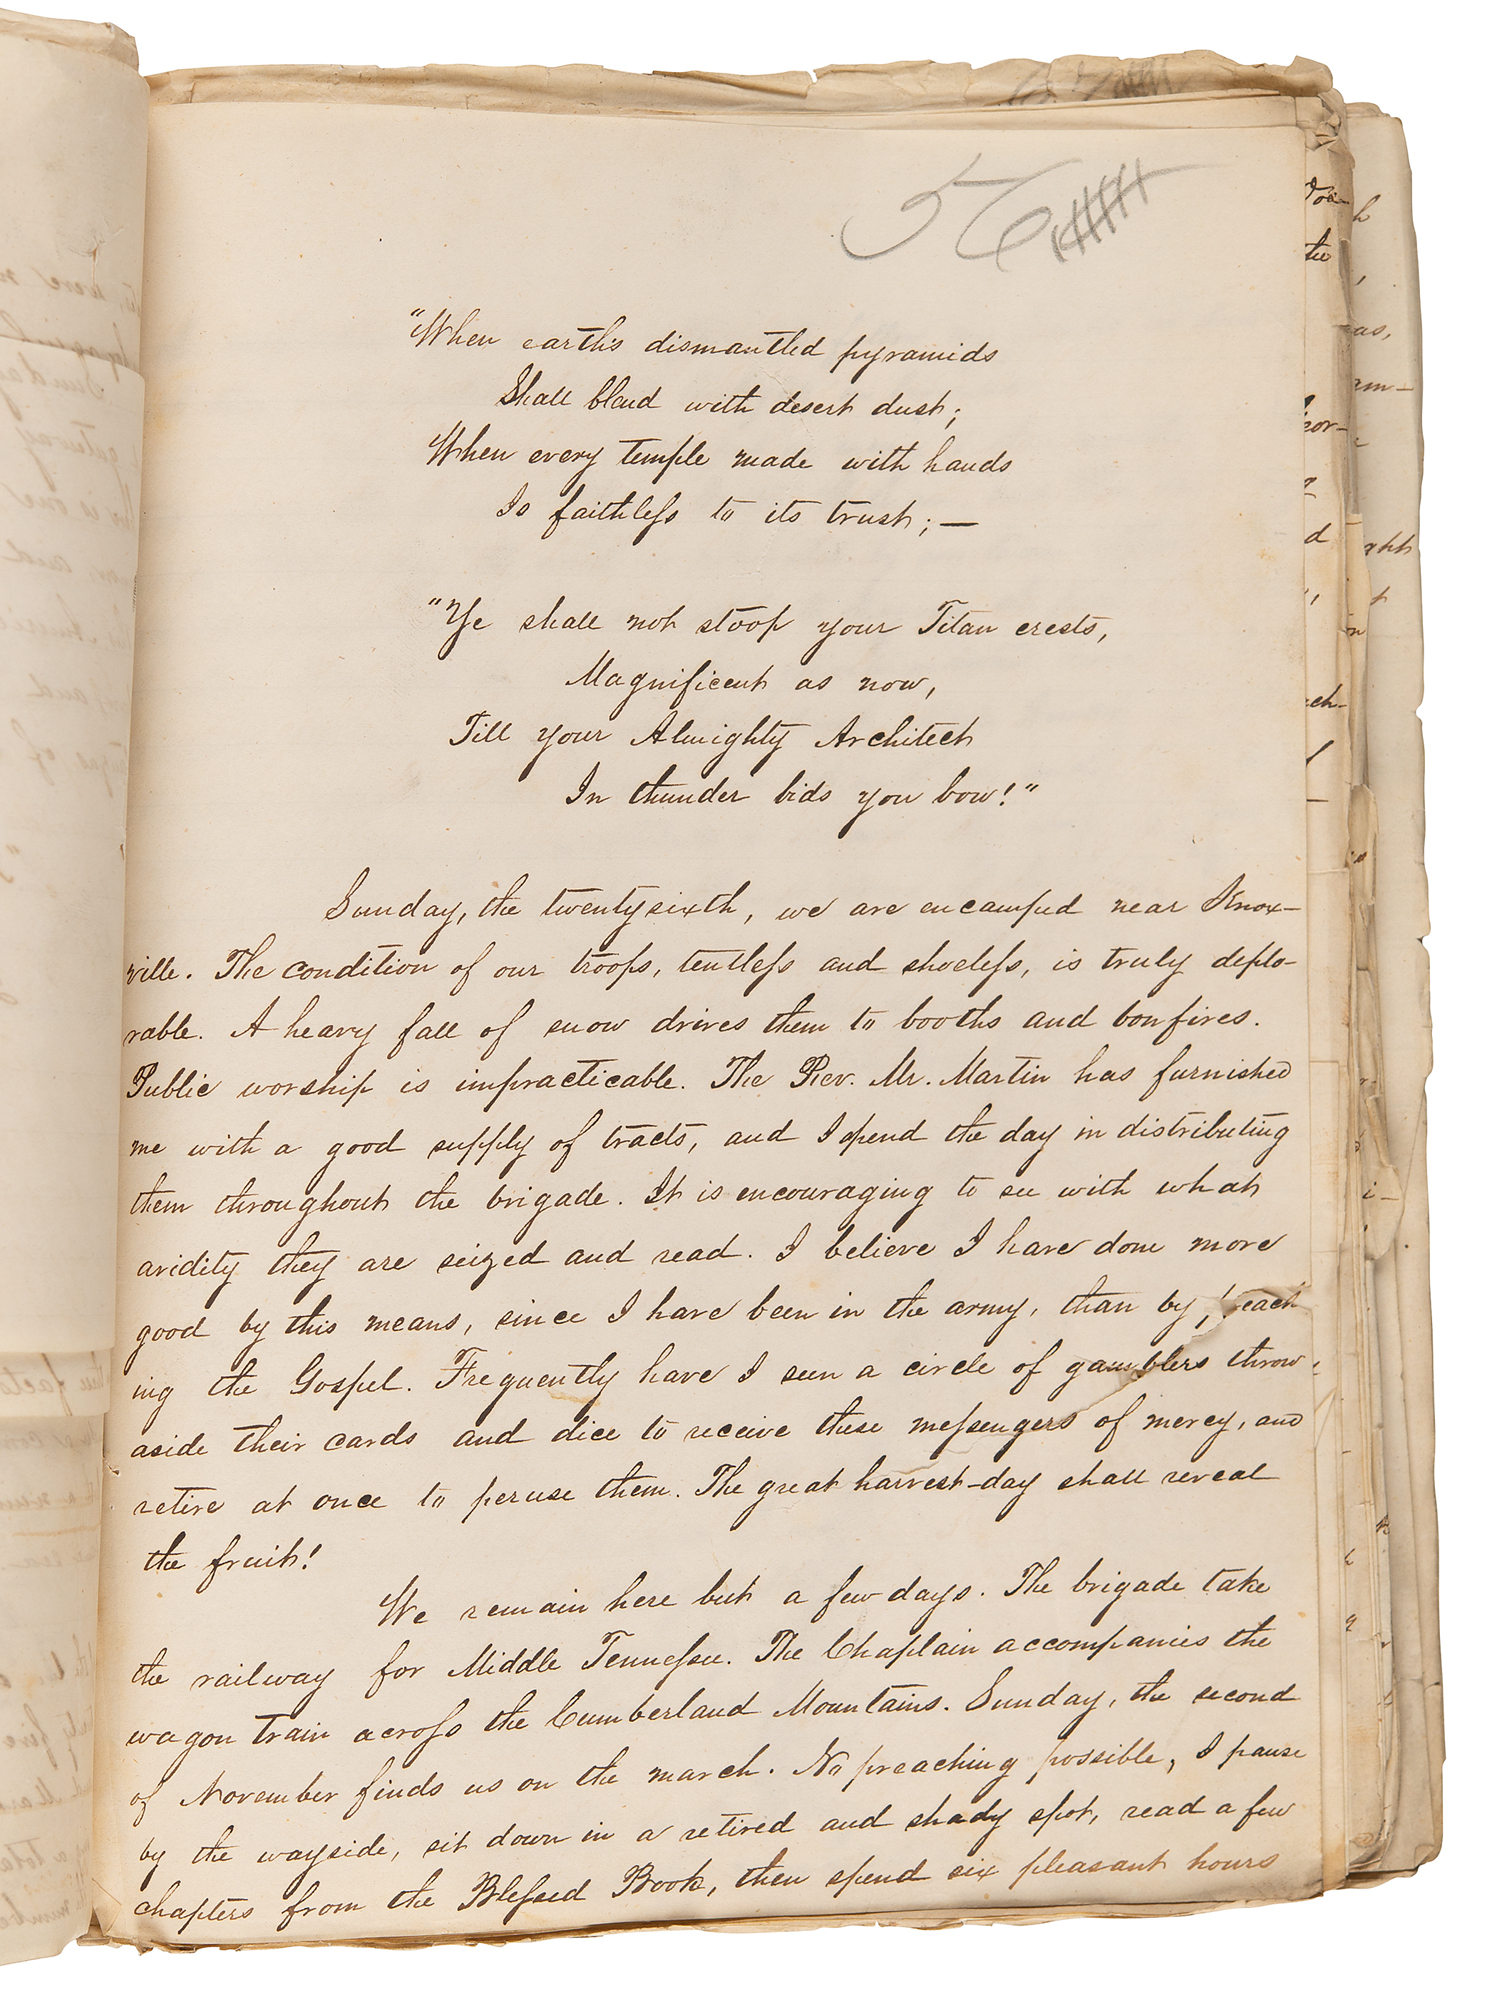 56
"When earth's dismantled pyramids
Shall blend with desert dust;
When every temple made with hands
Is faithless to its trust; —
"Ye shall not stoop your Titan crests,
Magnificent as now,
Till your Almighty Architect
In thunder bids you bow!"
Sunday, the twenty sixth, we are encamped near Knox-
ville. The condition of our troops, tentless and shoeless, is truly deplo-
rable. A heavy fall of snow drives them to booths and bonfires.
Public worship is impracticable. The Rev. Mr. Martin has furnished
me with a good supply of tracts, and I spend the day in distributing
them throughout the brigade. It is encouraging to see with what
avidity they are seized and read. I believe I have done more
good by this means, since I have been in the army, than by preach
ing the Gospel. Frequently have I seen a circle of gamblers throw
aside their cards and dice to receive these messengers of mercy, and
retire at once to peruse them. The great harvest-day shall reveal
the fruit!
We remain here but a few days. The brigade take
the railway for Middle Tennessee. The Chaplain accompanies the
wagon train across the Cumberland Mountains. Sunday, the second
of November finds us on the march. No preaching possible, I pause
by the wayside, sit down in a retired and shady spot, read a few
chapters from the Blessed Book, then spend six pleasant hours